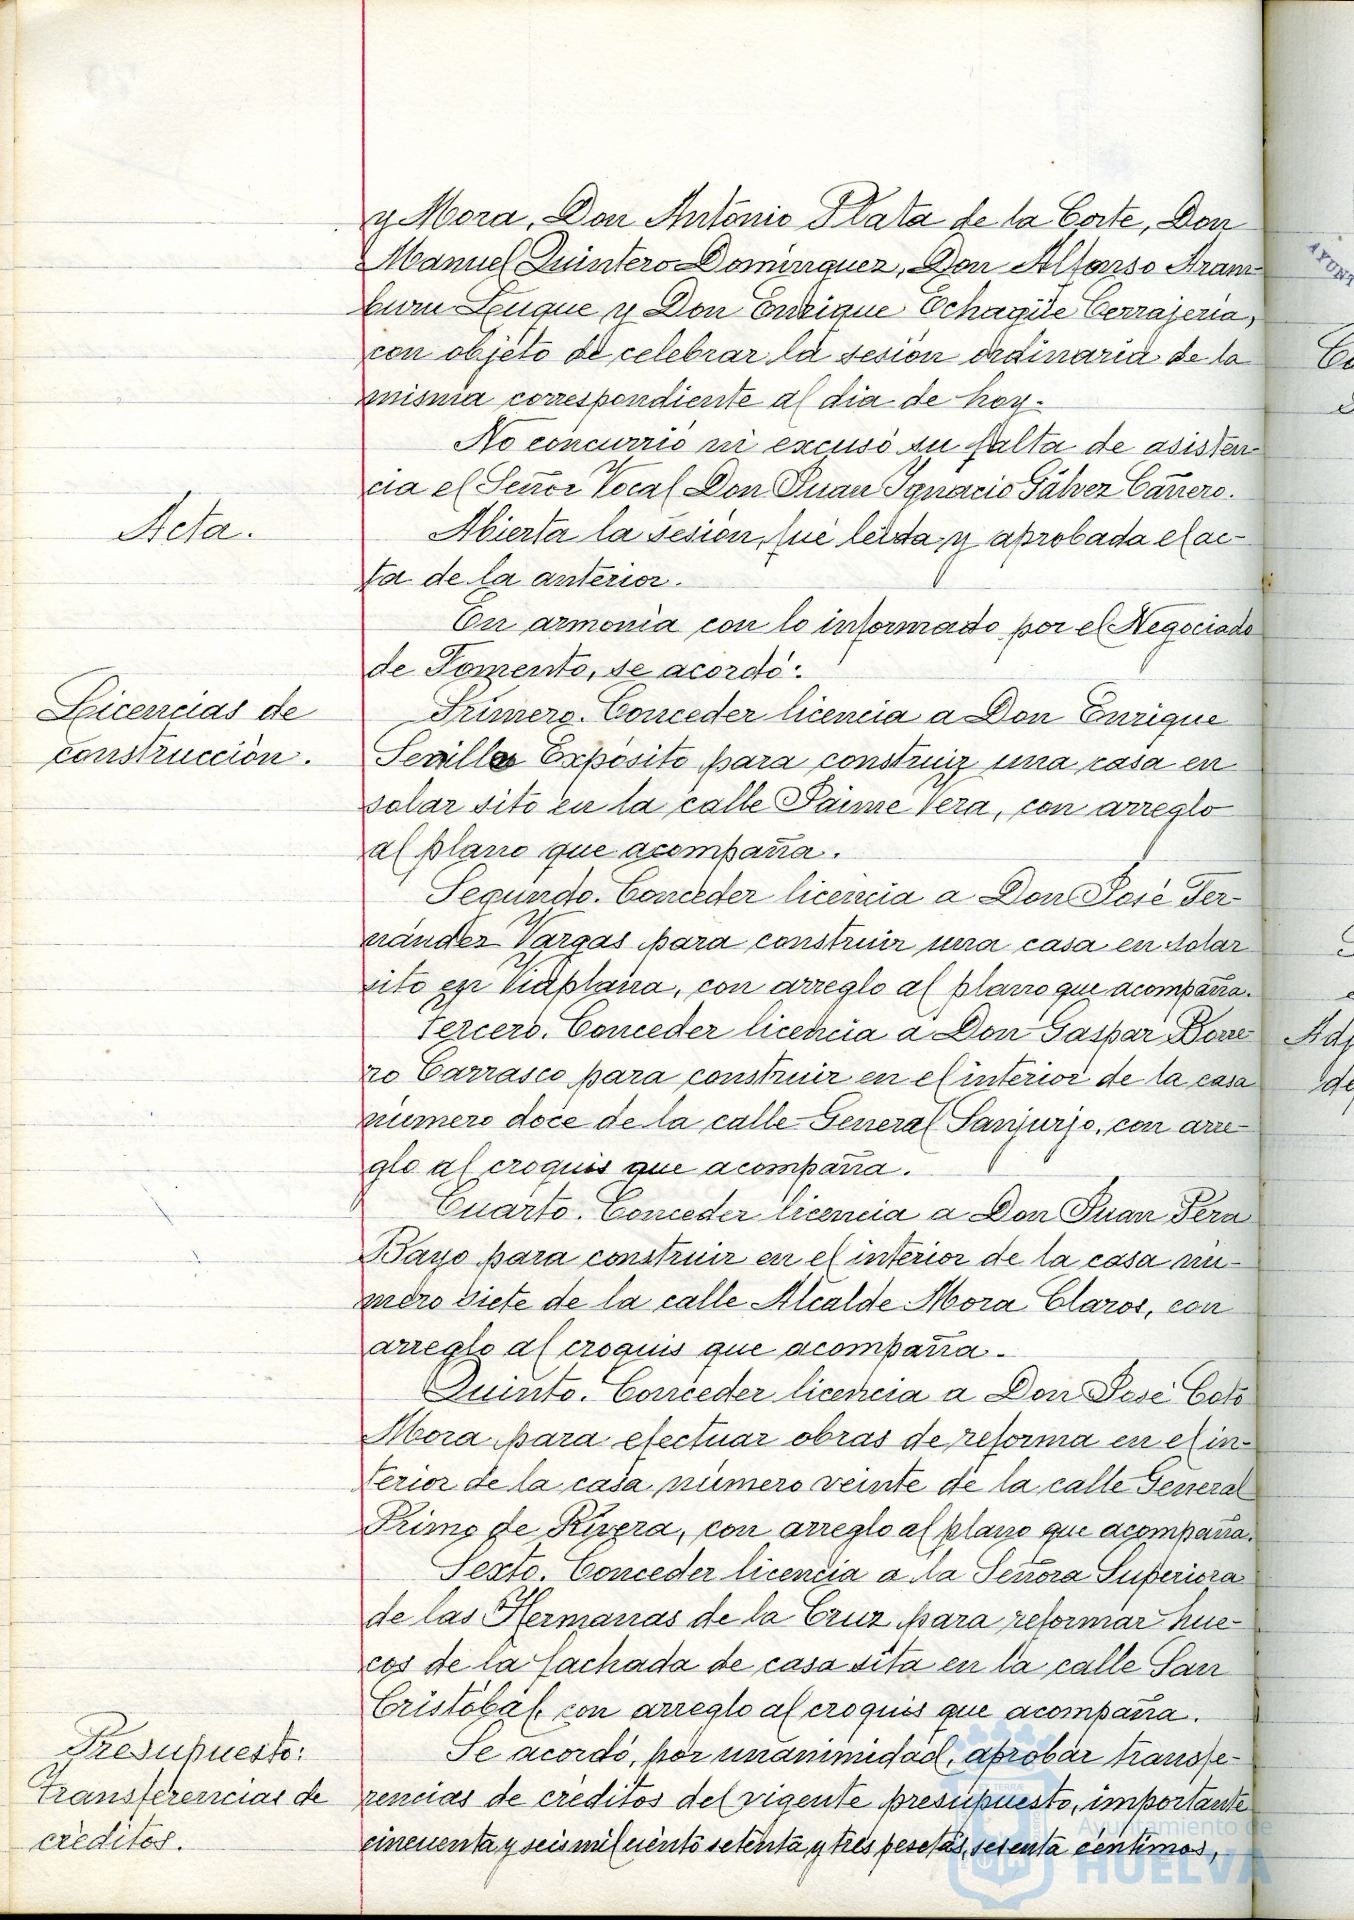 y Mora, Don Antonio Plata de la Corte, Don
Manuel Quintero Domínguez, Don Alfonso Aram-
buru Luque y Don Enrique Echagüe Cerrajería,
con objeto de celebrar la sesión ordinaria de la
misma correspondiente al dia de hoy.
No concurrió ni excusó su falta de asisten-
cia el Señor Vocal Don Juan Ignacio Gálvez Cañero.
Acta.
Abierta la sesión, fué leida y aprobada el ac-
ta de la anterior.
En armonía con lo informado por el Negociado
de Fomento, se acordó:
Licencias de
construcción.
Primero. Conceder licencia a Don Enrique
Sevilla Expósito para construir una casa en
solar sito en la calle Jaime Vera, con arreglo
al plano que acompaña.
Segundo. Conceder licencia a Don José Fer-
nández Vargas para construir una casa en solar
sito en Viaplana, con arreglo al plano que acompaña.
Tercero. Conceder licencia a Don Gaspar Borre-
ro Carrasco para construir en el interior de la casa
número doce de la calle General Sanjurjo, con arre-
glo al croquis que acompaña.
Cuarto. Conceder licencia a Don Juan Pera
Bayo para construir en el interior de la casa nú-
mero siete de la calle Alcalde Mora Claros, con
arreglo al croquis que acompaña.
Quinto. Conceder licencia a Don José Coto
Mora para efectuar obras de reforma en el in-
terior de la casa número veinte de la calle General
Primo de Rivera, con arreglo al plano que acompaña.
Sexto. Conceder licencia a la Señora Superiora
de las Hermanas de la Cruz para reformar hue-
cos de la fachada de casa sita en la calle San
Cristóbal, con arreglo al croquis que acompaña.
Presupuesto:
transferencias de
créditos.
Se acordó, por unanimidad, aprobar transfe-
rencias de créditos del vigente presupuesto, importante
cincuenta y seis mil ciento setenta y tres pesetas, sesenta céntimos,
Ayuntamiento de
HUELVA